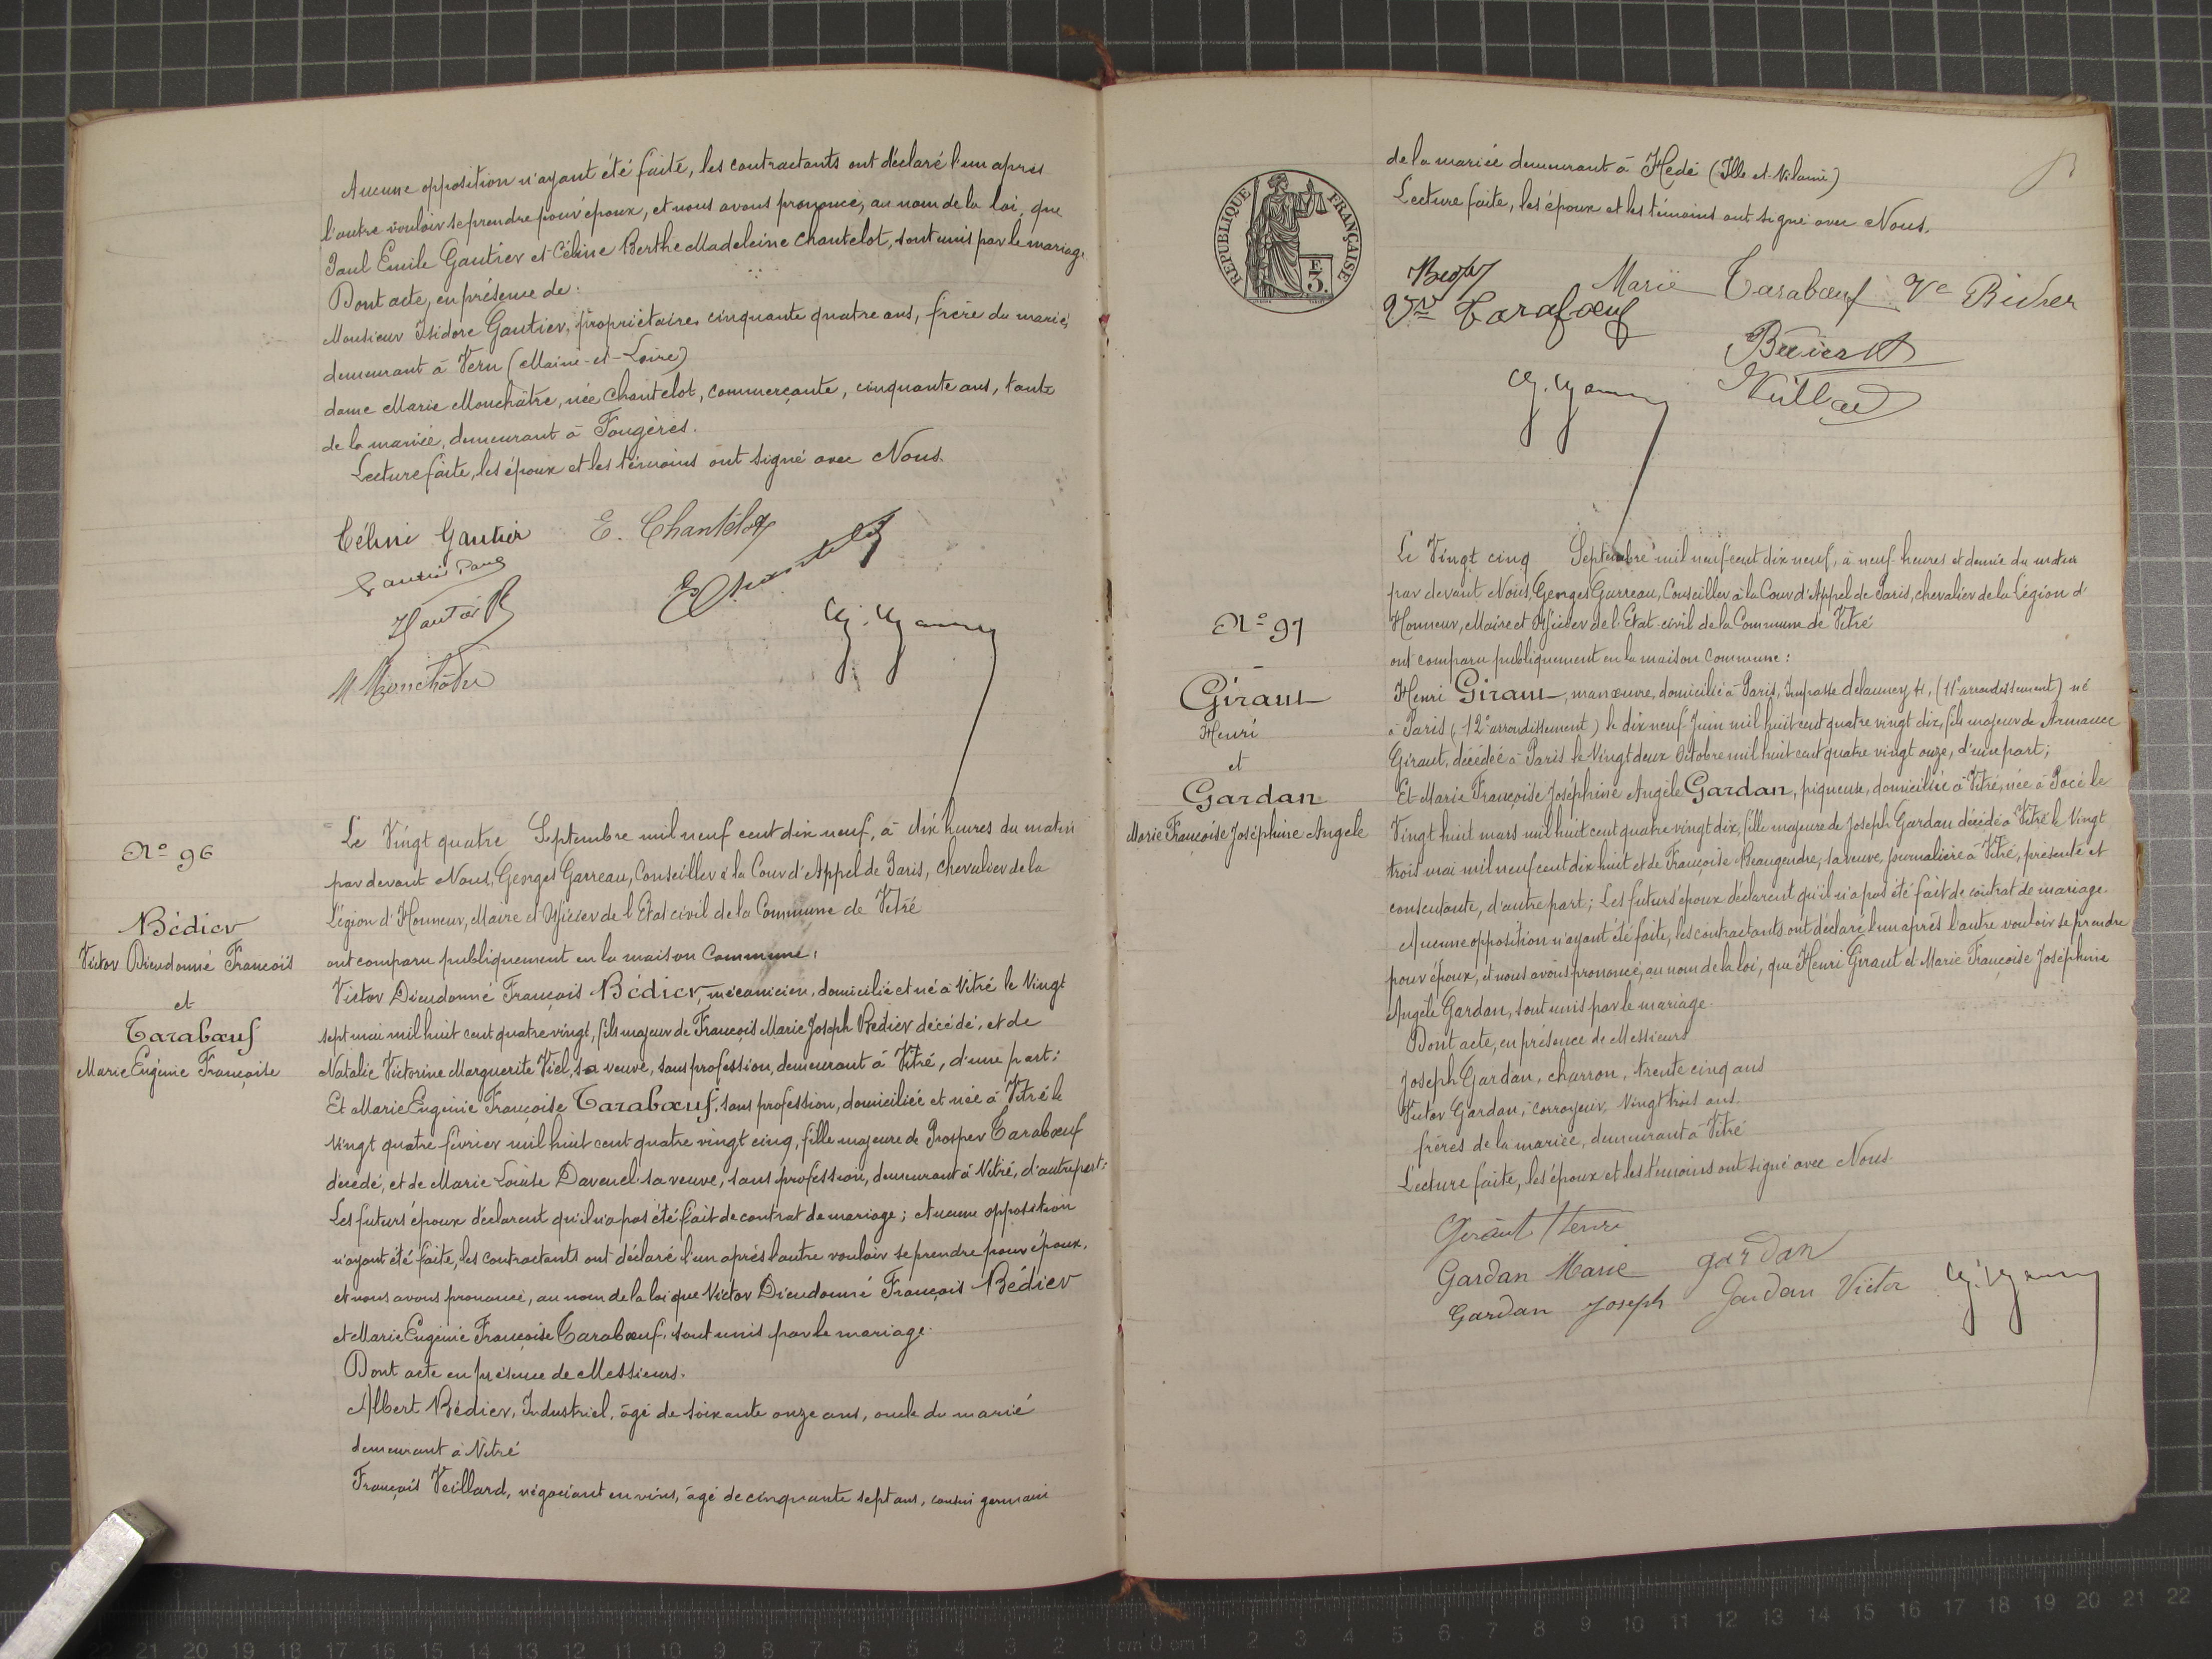 Aucune opposition n'ayant été faite, les contractants ont déclaré l'un après
l'autre vouloir se prendre pour époux, et nous avons prononcé, au nom de la loi, que
Paul Emile Gautier et Céline Berthe Madeleine Chantelot, sont unis par le mariage.
Dont acte, en présence de:
Monsieur Isidore Gautier, propriétaire, cinquante quatre ans, frère du marié,
demeurant à Vern (Maine-et-Loire)
dame Marie Mouchâtre, née Chantelot, commerçante, cinquante ans, tante
de la mariée, demeurant à Fougères.
Lecture faite, les époux et les témoins ont signé avec Nous.
Céline Gautier E. Chantelot
Gautier Paul
M Mouchâtre
No 96
Bédier
Victor Dieudonné François
et
Tarabœuf
Marie Eugénie Françoise
Le Vingt quatre Septembre mil neuf cent dix neuf, à dix heures du matin
par devant Nous, Georges Garreau, Conseiller à la Cour d'Appel de Paris, Chevalier de la
Légion d'Honneur, Maire et Officier de l'Etat civil de la Commune de Vitré
ont comparu publiquement en la maison Commune:
Victor Dieudonné François Bédier, mécanicien, domicilié et né à Vitré le Vingt
sept mai mil huit cent quatre vingt, fils majeur de François Marie Joseph Bédier décédé, et de
Natalie Victorine Marguerite Viel, sa veuve, sans profession, demeurant à Vitré, d'une part;
Et Marie Eugénie Françoise Tarabœuf, sans profession, domiciliée et née à Vitré le
Vingt quatre février mil huit cent quatre vingt cinq, fille majeure de Prosper Tarabœuf
décédé, et de Marie Louise Davenel sa veuve, sans profession, demeurant à Vitré, d'autre part;
Les futurs époux déclarent qu'il n'a pas été fait de contrat de mariage; Aucune opposition
n'ayant été faite, les contractants ont déclaré l'un après l'autre vouloir se prendre pour époux,
et nous avons prononcé, au nom de la loi que Victor Dieudonné François Bédier
et Marie Eugénie Françoise Tarabœuf, sont unis par le mariage.
Dont acte en présence de Messieurs.
Albert Bédier, Industriel, âgé de soixante onze ans, oncle du marié
demeurant à Vitré
François Veillard, négociant en vins, âgé de cinquante sept ans, cousin germain
de la mariée demeurant à Hédé (Ille et-Vilaine)
Lecture faite, les époux et les témoins ont signé avec Nous.
RÉPUBLIQUE FRANÇAISE
E
3.
Marie Tarabœuf Ve Richer
Tarabœuf
No 97
Giraut
Henri
et
Gardan
Marie Françoise Joséphine Angèle
Le Vingt cinq Septembre mil neuf cent dix neuf, à neuf heures et demie du matin
par devant Nous Georges Garreau, Conseiller à la Cour d'Appel de Paris, chevalier de la Légion d'
Honneur, Maire et Officier de l'Etat civil de la Commune de Vitré
ont comparu publiquement en la maison Commune:
Henri Giraut, manœuvre, domicilié à Paris, Impasse delaunay 4, (11e arrondissement) né
à Paris (12e arrondissement) le dix neuf Juin mil huit cent quatre vingt dix, fils majeur de Armance
Giraut, décédée à Paris le Vingt deux Octobre mil huit cent quatre vingt onze, d'une part;
Et Marie Françoise Joséphine Angèle Gardan, piqueuse, domiciliée à Vitré, née à Pocé le
Vingt huit mars mil huit cent quatre vingt dix, fille majeure de Joseph Gardan décédé à Vitré le Vingt
trois mai mil neuf cent dix huit et de Françoise Beaugendre, sa veuve, journalière à Vitré, présente et
consentante, d'autre part; Les futurs époux déclarent qu'il n'a pas été fait de contrat de mariage.
Aucune opposition n'ayant été faite, les contractants ont déclaré l'un après l'autre vouloir se prendre
pour époux, et nous avons prononcé, au nom de la loi, que Henri Giraut et Marie Françoise Joséphine
Angèle Gardan, sont unis par le mariage.
Dont acte, en présence de Messieurs
Joseph Gardan, charron, trente cinq ans
Victor Gardan, corroyeur, Vingt trois ans.
frères de la mariée, demeurant à Vitré
Lecture faite, les époux et les témoins ont signé avec Nous.
Giraut Henri
Gardan Marie gardan
Gardan Joseph Gardan Victor
21 20 19 18 17 16 15 14 13 12 11 10 9 8 7 6 5 4 3 2 1 cm 0 cm 1 2 3 4 5 6 7 8 9 10 11 12 13 14 15 16 17 18 19 20 21 22